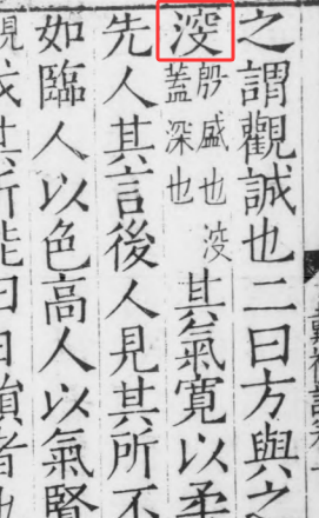 之謂觀誠也二曰方與之
湥殷盛也没蓋深也其氣寬以柔
先人其言後人見其所不
如臨人以色高人以氣賢
其所能曰日損者